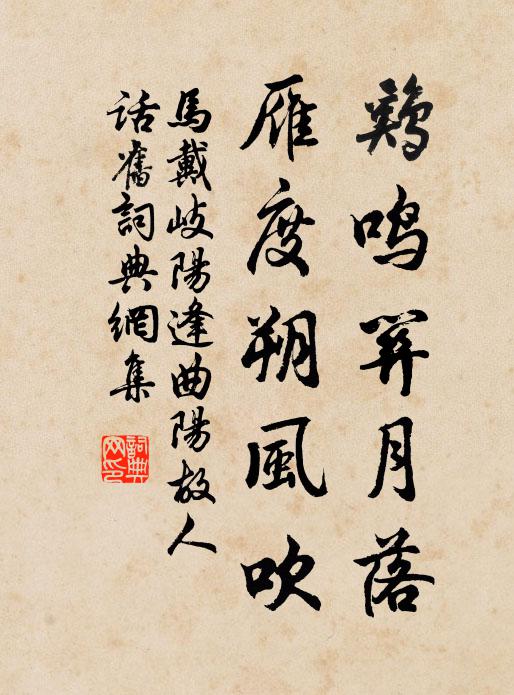 鷄鳴關月落
雁度朔風吹
馬戴岐陽逢曲陽故人
话舊詞典網集
詞典
网印